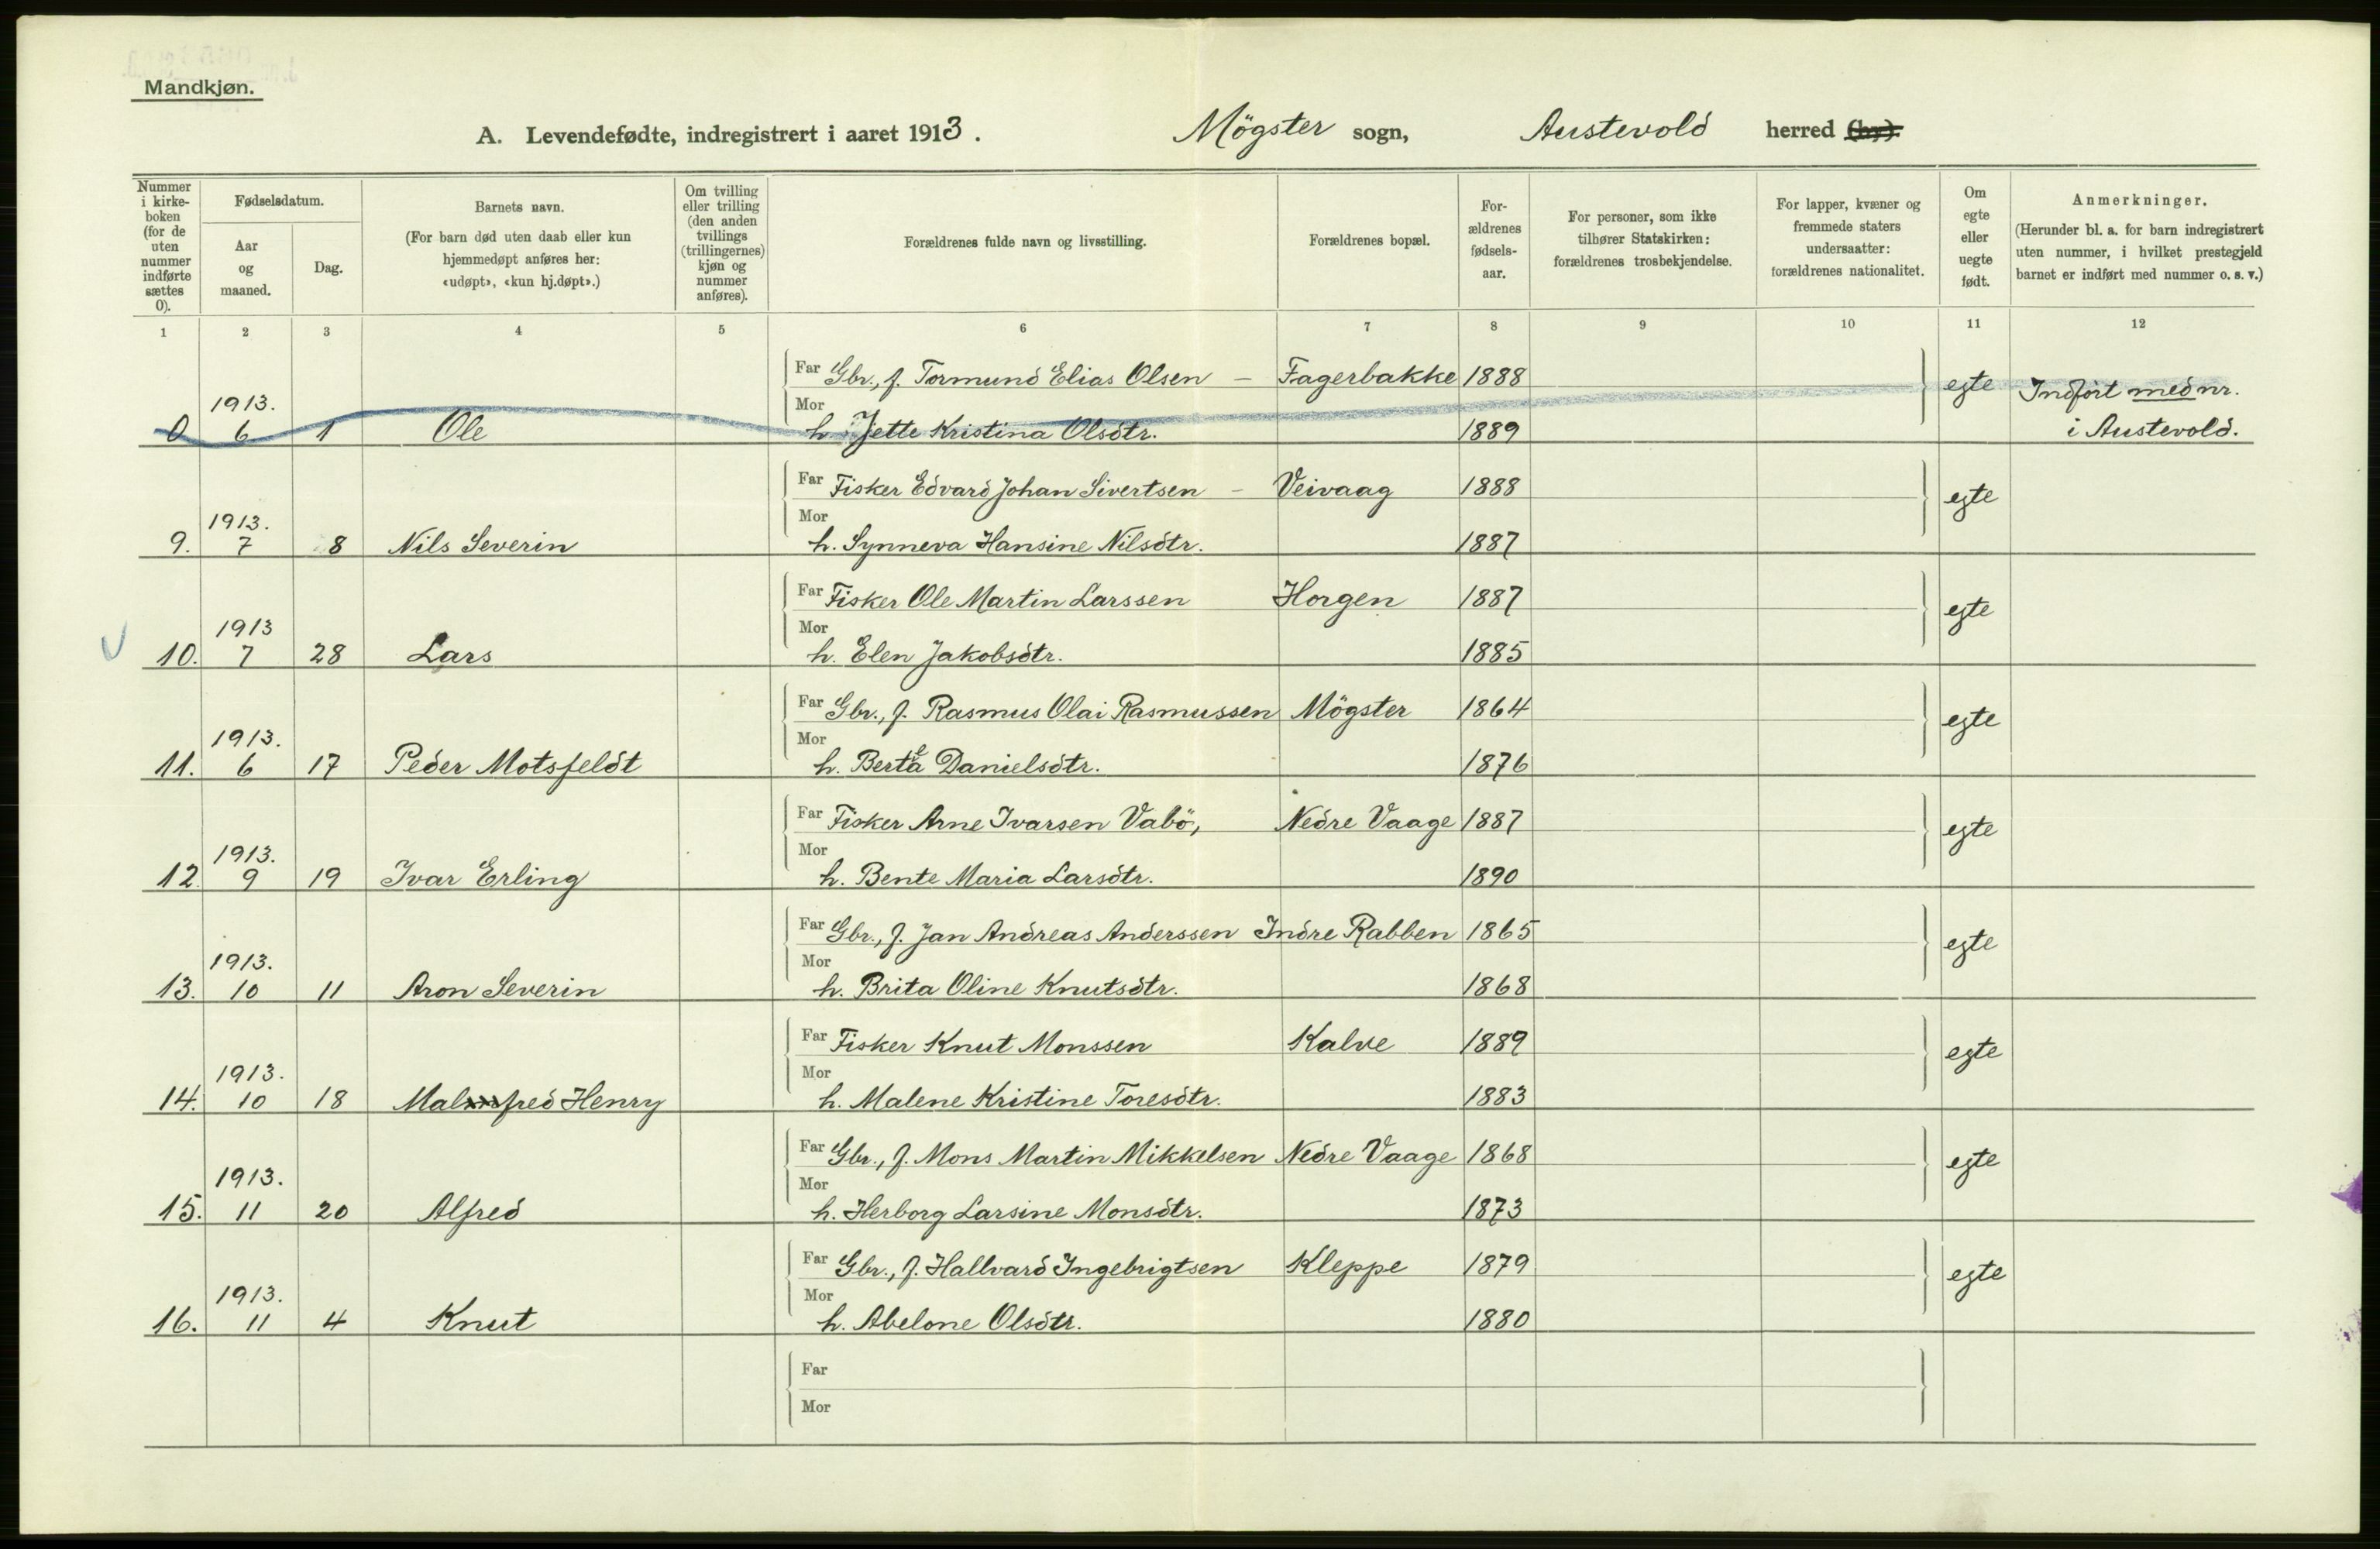 Mandkjøn.
A. Levendefødte, indregistrert i aaret 1913. Mögster sogn, Austevold herred (by).
Nummer i kirkeboken (for de uten nummer indførte sættes 0).
Fødselsdatum.
Aar og maaned.
Dag.
Barnets navn.
(For barn død uten daab eller kun hjemmedøpt anføres her: «udøpt», «kun hj.døpt».)
Om tvilling eller trilling (den anden tvillings (trillingernes) kjøn og nummer anføres).
Forældrenes fulde navn og livsstilling.
Forældrenes bopæl.
Forældrenes fødselsaar.
For personer, som ikke tilhører Statskirken: forældrenes trosbekjendelse.
For lapper, kvæner og fremmede staters undersaatter: forældrenes nationalitet.
Om egte eller uegte født.
Anmerkninger.
(Herunder bl. a. for barn indregistrert uten nummer, i hvilket prestegjeld barnet er indført med nummer o. s. v.)
1 2 3 4 5 6 7 8 9 10 11 12
Far Gbr., f. Tormund Elias Olsen – Fagerbakke 1888 egte Indført med nr.
1913.
Mor
0 6 1 Ole h. Jette Kristina Olsdtr. 1889 i Austevold.
Far Fisker Edvard Johan Sivertsen – Veivaag 1888 egte
1913.
Mor
9. 7 8 Nils Severin h. Synneva Hansine Nilsdtr. 1887
Far Fisker Ole Martin Larssen Horgen 1887 egte
1913
Mor
10. 7 28 Lars h. Elen Jakobsdtr. 1885
Far Gbr., f. Rasmus Olai Rasmussen Mögster 1864 egte
1913.
Mor
11. 6 17 Peder Motsfeldt h. Berta Danielsdtr. 1876
Far Fisker Arne Ivarsen Vabö, Nedre Vaage 1887 egte
1913.
Mor
12. 9 19 Ivar Erling h. Bente Maria Larsdtr. 1890
Far Gbr., f. Jan Andreas Anderssen Indre Rabben 1865 egte
1913.
Mor
13. 10 11 Aron Severin h. Brita Oline Knutsdtr. 1868
Far Fisker Knut Monssen Kalve 1889 egte
1913.
Mor
14. 10 18 Malmfred Henry h. Malene Kristine Toresdtr. 1883
Far Gbr., f. Mons Martin Mikkelsen Nedre Vaage 1868 egte
1913.
Mor
15. 11 20 Alfred h. Herborg Larsine Monsdtr. 1873
Far Gbr., f. Hallvard Ingebrigtsen Kleppe 1879 egte
1913.
Mor
16. 11 4 Knut h. Abelone Olsdtr. 1880
Far
Mor